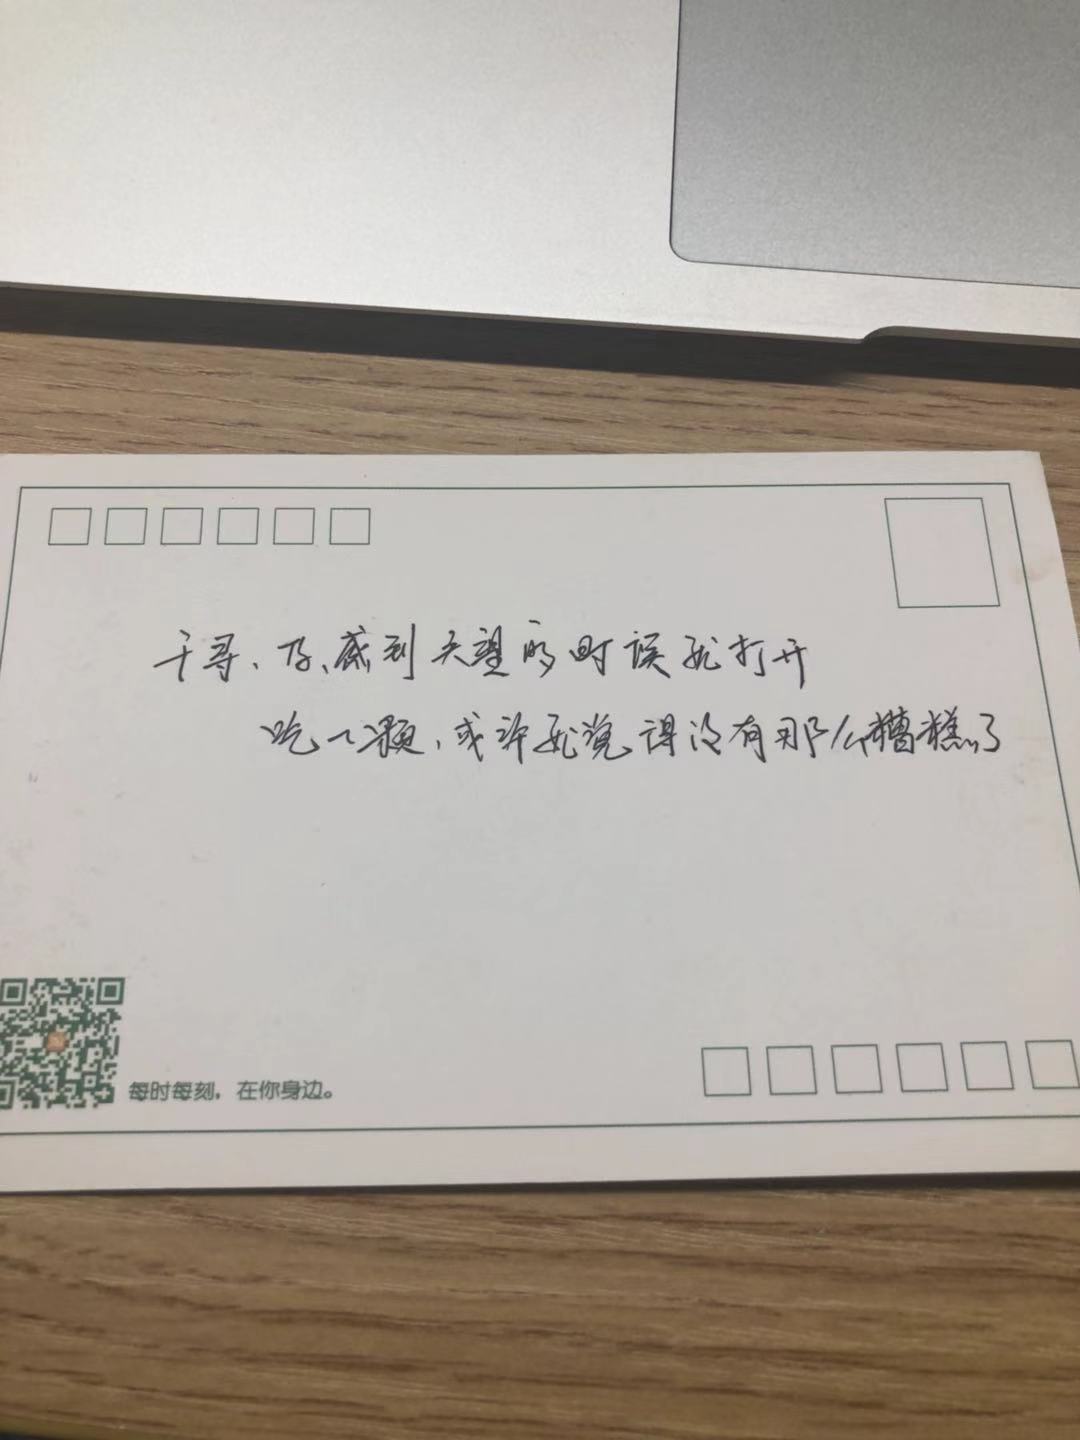 千寻、及、感到失望的时误就打开
吃一颗,或许就觉得没有那么糟糕了
每时每刻,在你身边。